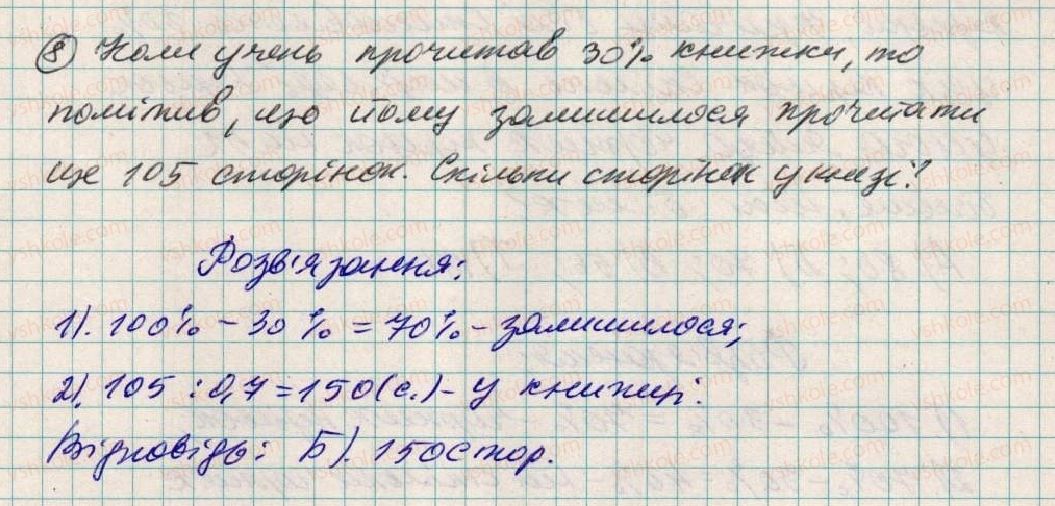 8) Коли учень прочитав 30% книжки, то
помітив, що йому залишилося прочитати
ще 105 сторінок. Скільки сторінок у книзі?
Розв'язання:
1). 100% - 30% = 70% - залишилося;
2). 105 : 0,7 = 150 (с.) - у книжці.
Відповідь: Б). 150 стор.